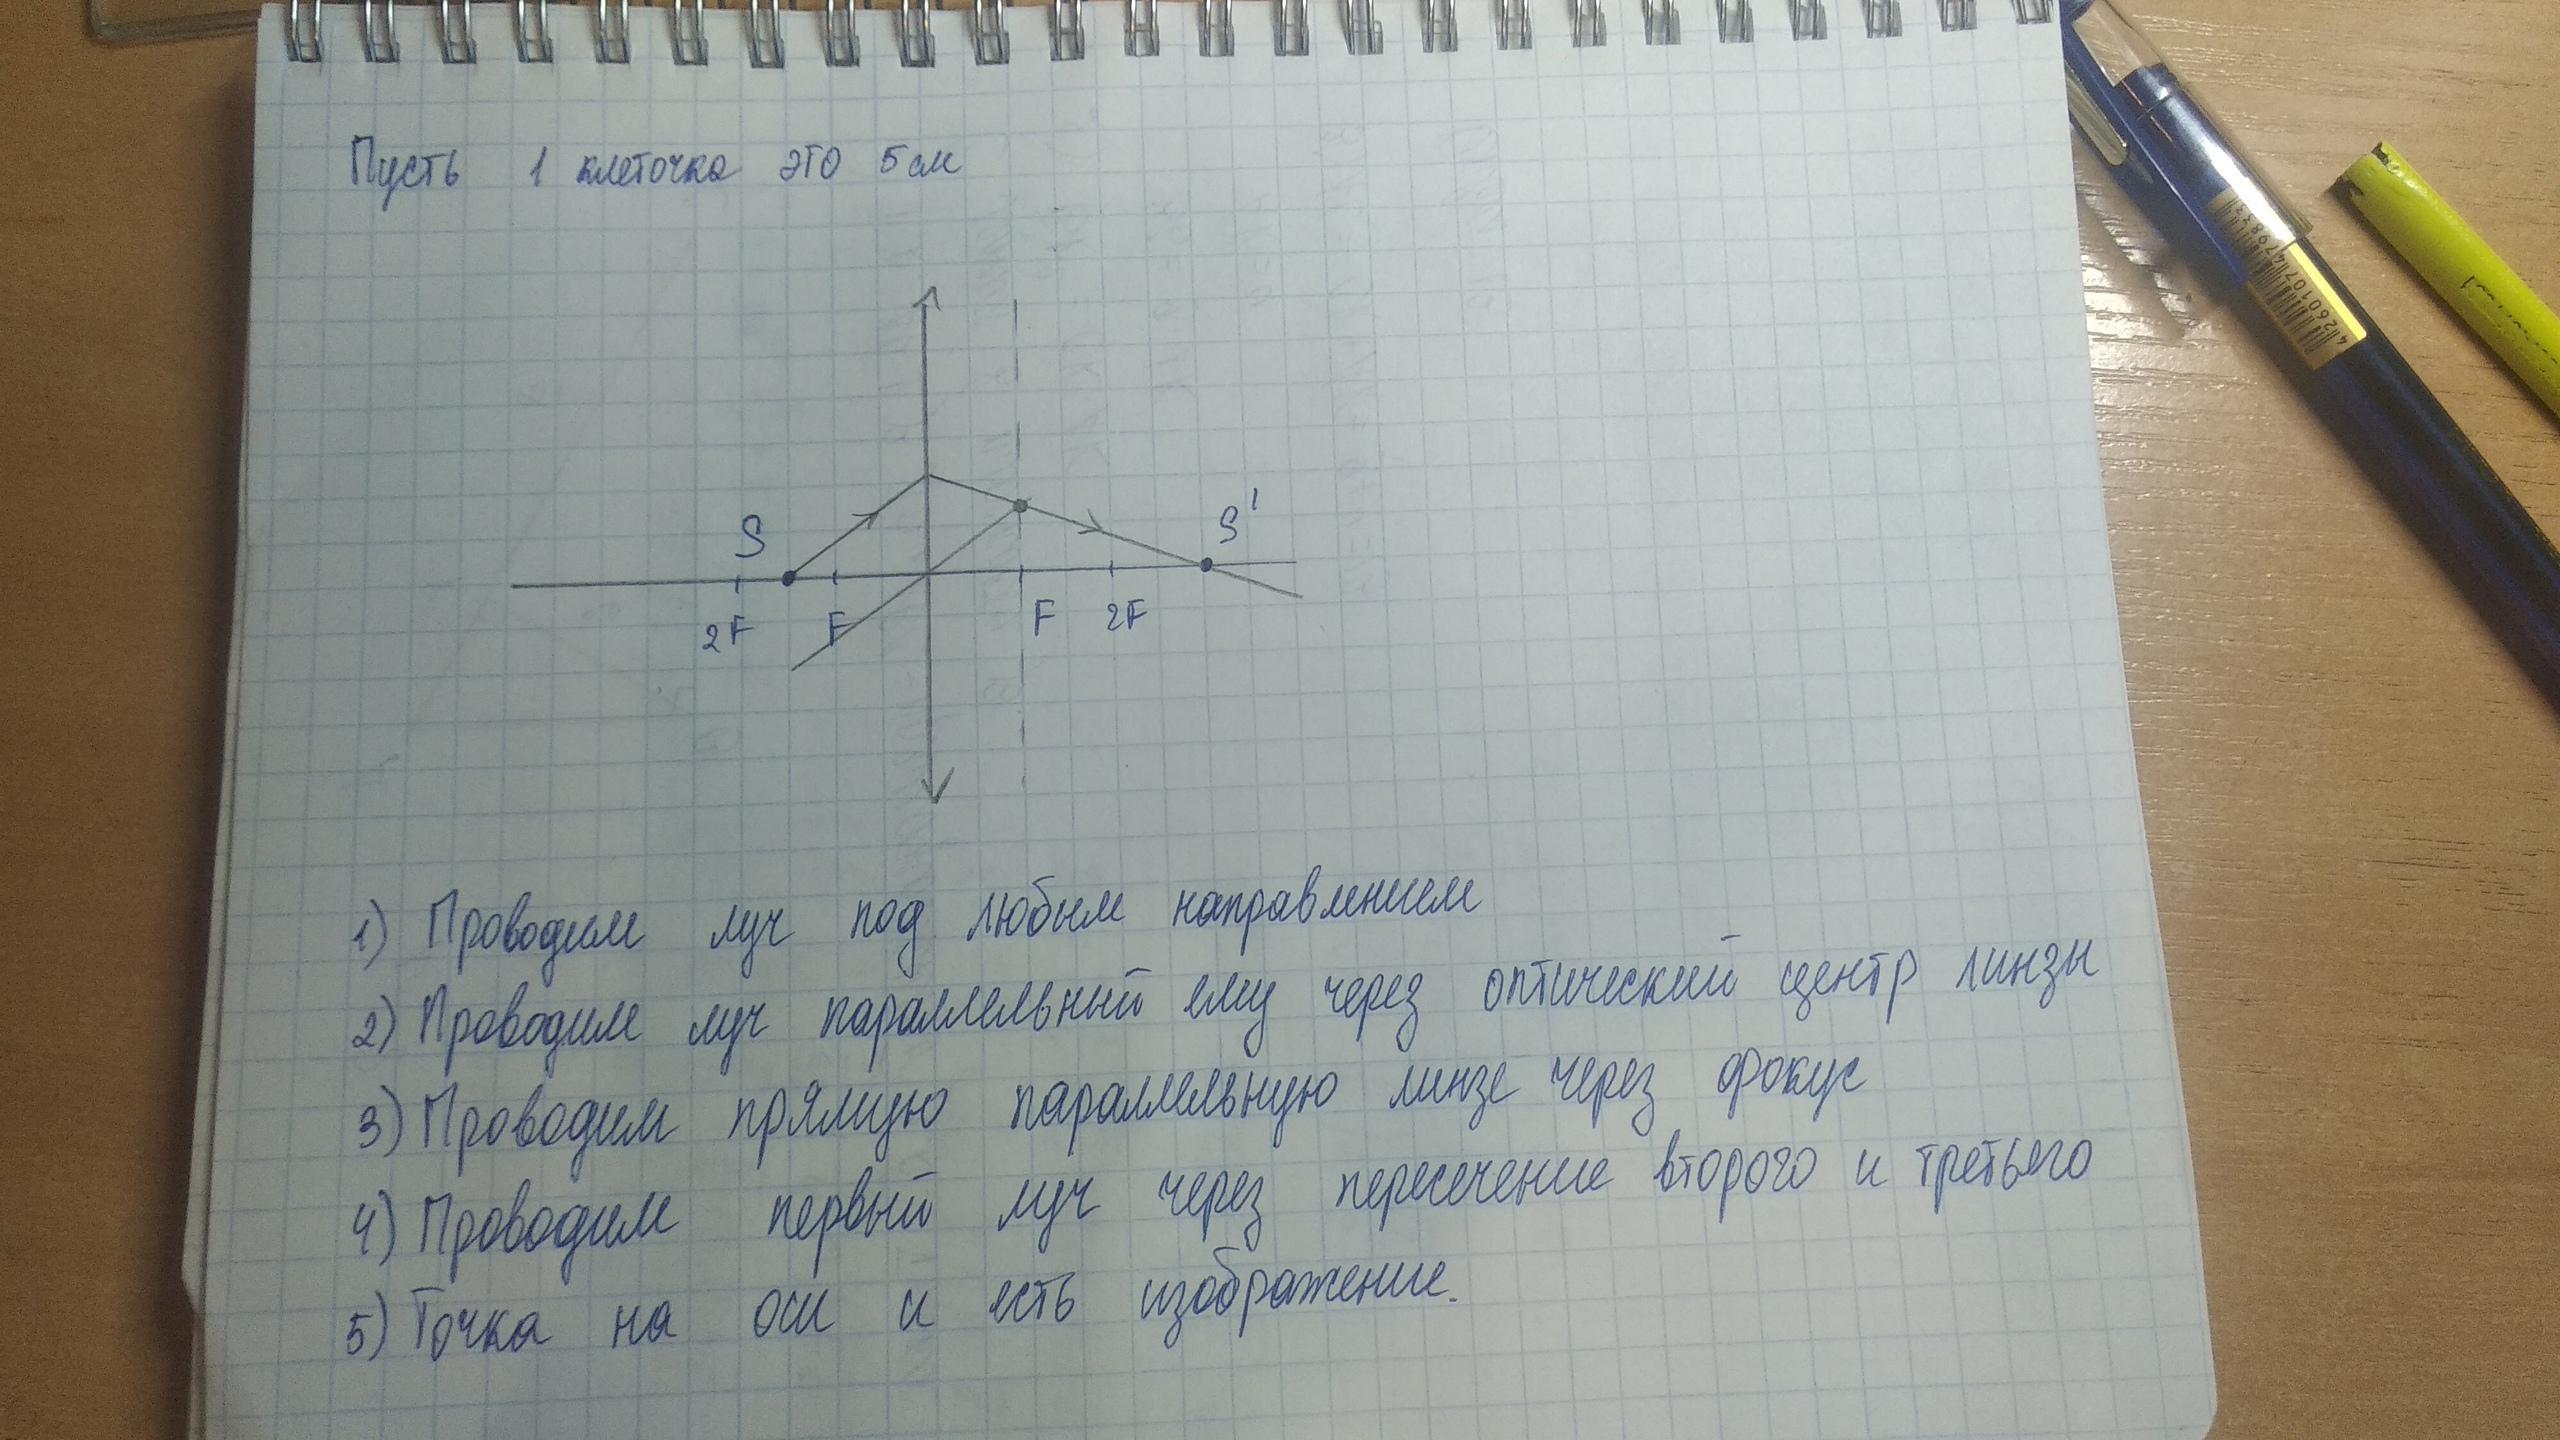 Пусть 1 клеточка это 5 см
S
S'
2F F F 2F
1) Проводим луч под любым направлением
2) Проводим луч параллельный ему через оптический центр линзы
3) Проводим прямую параллельную линзе через фокус
4) Проводим первый луч через пересечение второго и третьего
5) Точка на оси и есть изображение.